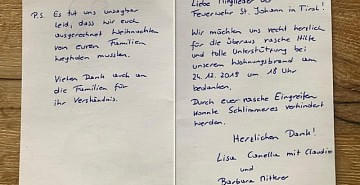 P.S. Es tut uns unsagbar
leid, dass wir euch
ausgerechnet Weihnachten
von euren Familien
wegholen mussten.
Vielen Dank auch an
die Familien für
ihr Verständnis.
Liebe Mitglieder der
Feuerwehr St. Johann in Tirol!
Wir möchten uns recht herzlich
für die überaus rasche Hilfe
und tolle Unterstützung bei
unserem Wohnungsbrand am
24.12.2019 um 18 Uhr
bedanken.
Durch euer rasche Eingreifen
konnte Schlimmeres verhindert
werden.
Herzlichen Dank!
Lisa Canella mit Claudio
und
Barbara Mitterer